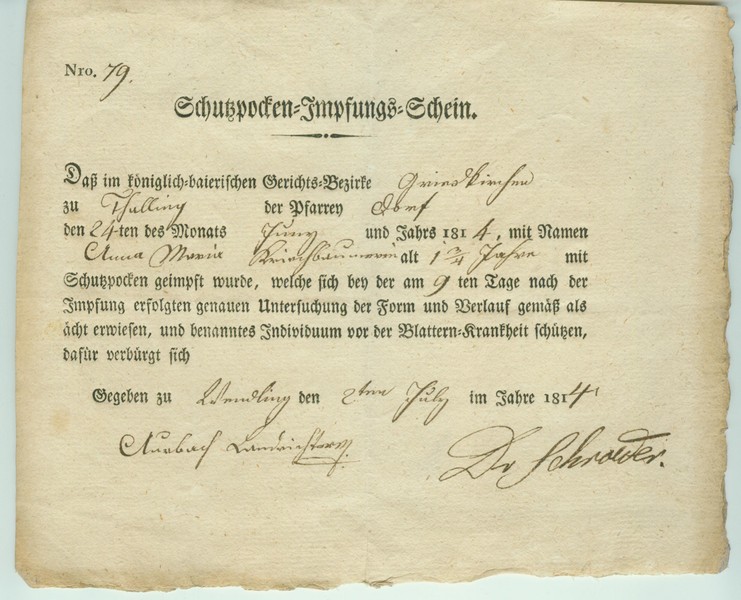 Nro. 79.
Schutzpocken-Impfungs-Schein.
Daß im königlich-baierischen Gerichts-Bezirke Grieskirchen
zu Thalling der Pfarrey Dorf
den 24-ten des Monats Juny und Jahrs 1814, mit Namen
Anna Maria alt 1 3/4 Jahre mit
Schutzpocken geimpft wurde, welche sich bey der am 9 ten Tage nach der
Impfung erfolgten genauen Untersuchung der Form und Verlauf gemäß als
ächt erwiesen, und benanntes Individuum vor der Blattern-Krankheit schützen,
dafür verbürgt sich
Gegeben zu Wendling den 2ten July im Jahre 1814
Auerbach Landrichter
Dr Schroeder.